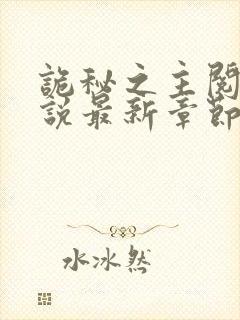 詭秘之主閱
說最新章節
水冰然